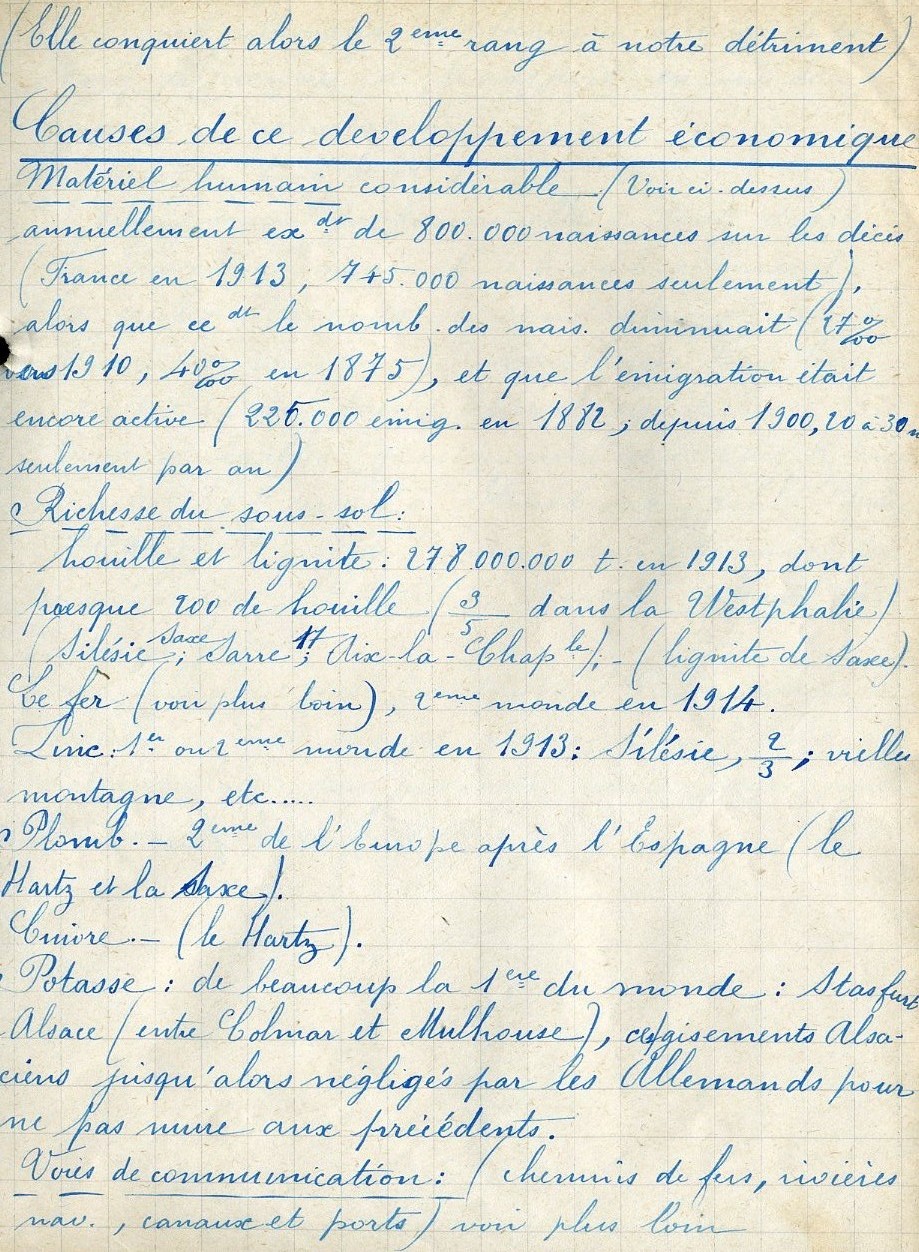 (Elle conquiert alors le 2eme rang à notre détriment)
Causes de ce developpement économique
Matériel humain considérable. (Voir ci-dessus)
annuellement exdt de 800.000 naissances sur les décès
(France en 1913, 745.000 naissances seulement),
alors que cedt le nomb. des nais. diminuait (27 ‰
vers 1910, 40 ‰ en 1875), et que l'émigration était
encore active (225.000 émig. en 1882 ; depuis 1900, 20 à 30 m
seulement par an)
Richesse du sous-sol :
houille et lignite : 278.000.000 t. en 1913, dont
presque 200 de houille (3/5 dans la Westphalie)
(Silésie ; Saxe Sarre 17 ; Aix-la-Chaple) ; - (lignite de Saxe).
Le fer (voir plus loin), 2eme monde en 1914.
Zinc : 1er ou 2eme monde en 1913 : Silésie, 2/3 ; vieille
montagne, etc.....
Plomb. - 2eme de l'Europe après l'Espagne (le
Hartz et la Saxe).
Cuivre. - (le Hartz).
Potasse : de beaucoup la 1ere du monde : Stasfurt
Alsace (entre Colmar et Mulhouse), ces gisements Alsa-
ciens jusqu'alors négligés par les Allemands pour
ne pas nuire aux précédents.
Voies de communication : (chemins de fers, rivières
nav., canaux et ports) voir plus loin